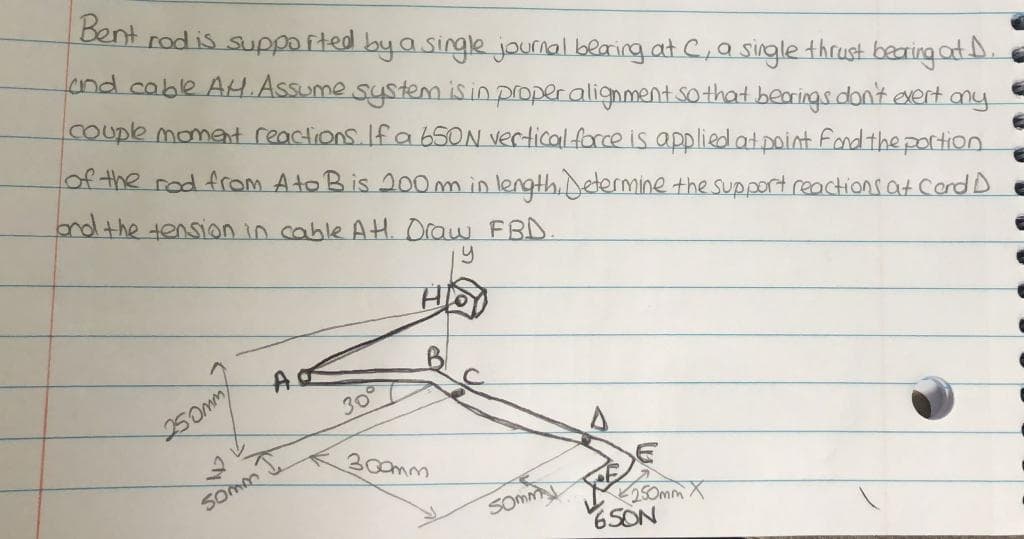 Bent rod is supported by a single journal bearing at C, a single thrust bearing at D.
and cable AH. Assume system is in proper alignment so that bearings don't exert any
couple moment reactions. If a 650N vertical force is applied at point F and the portion
of the rod from A to B is 200mm in length, Determine the support reactions at C and D
and the tension in cable AH. Draw FBD.
y
H
B
C
A
30°
250mm
D
E
z
300mm
F
50mm
50mm
250mm X
650N